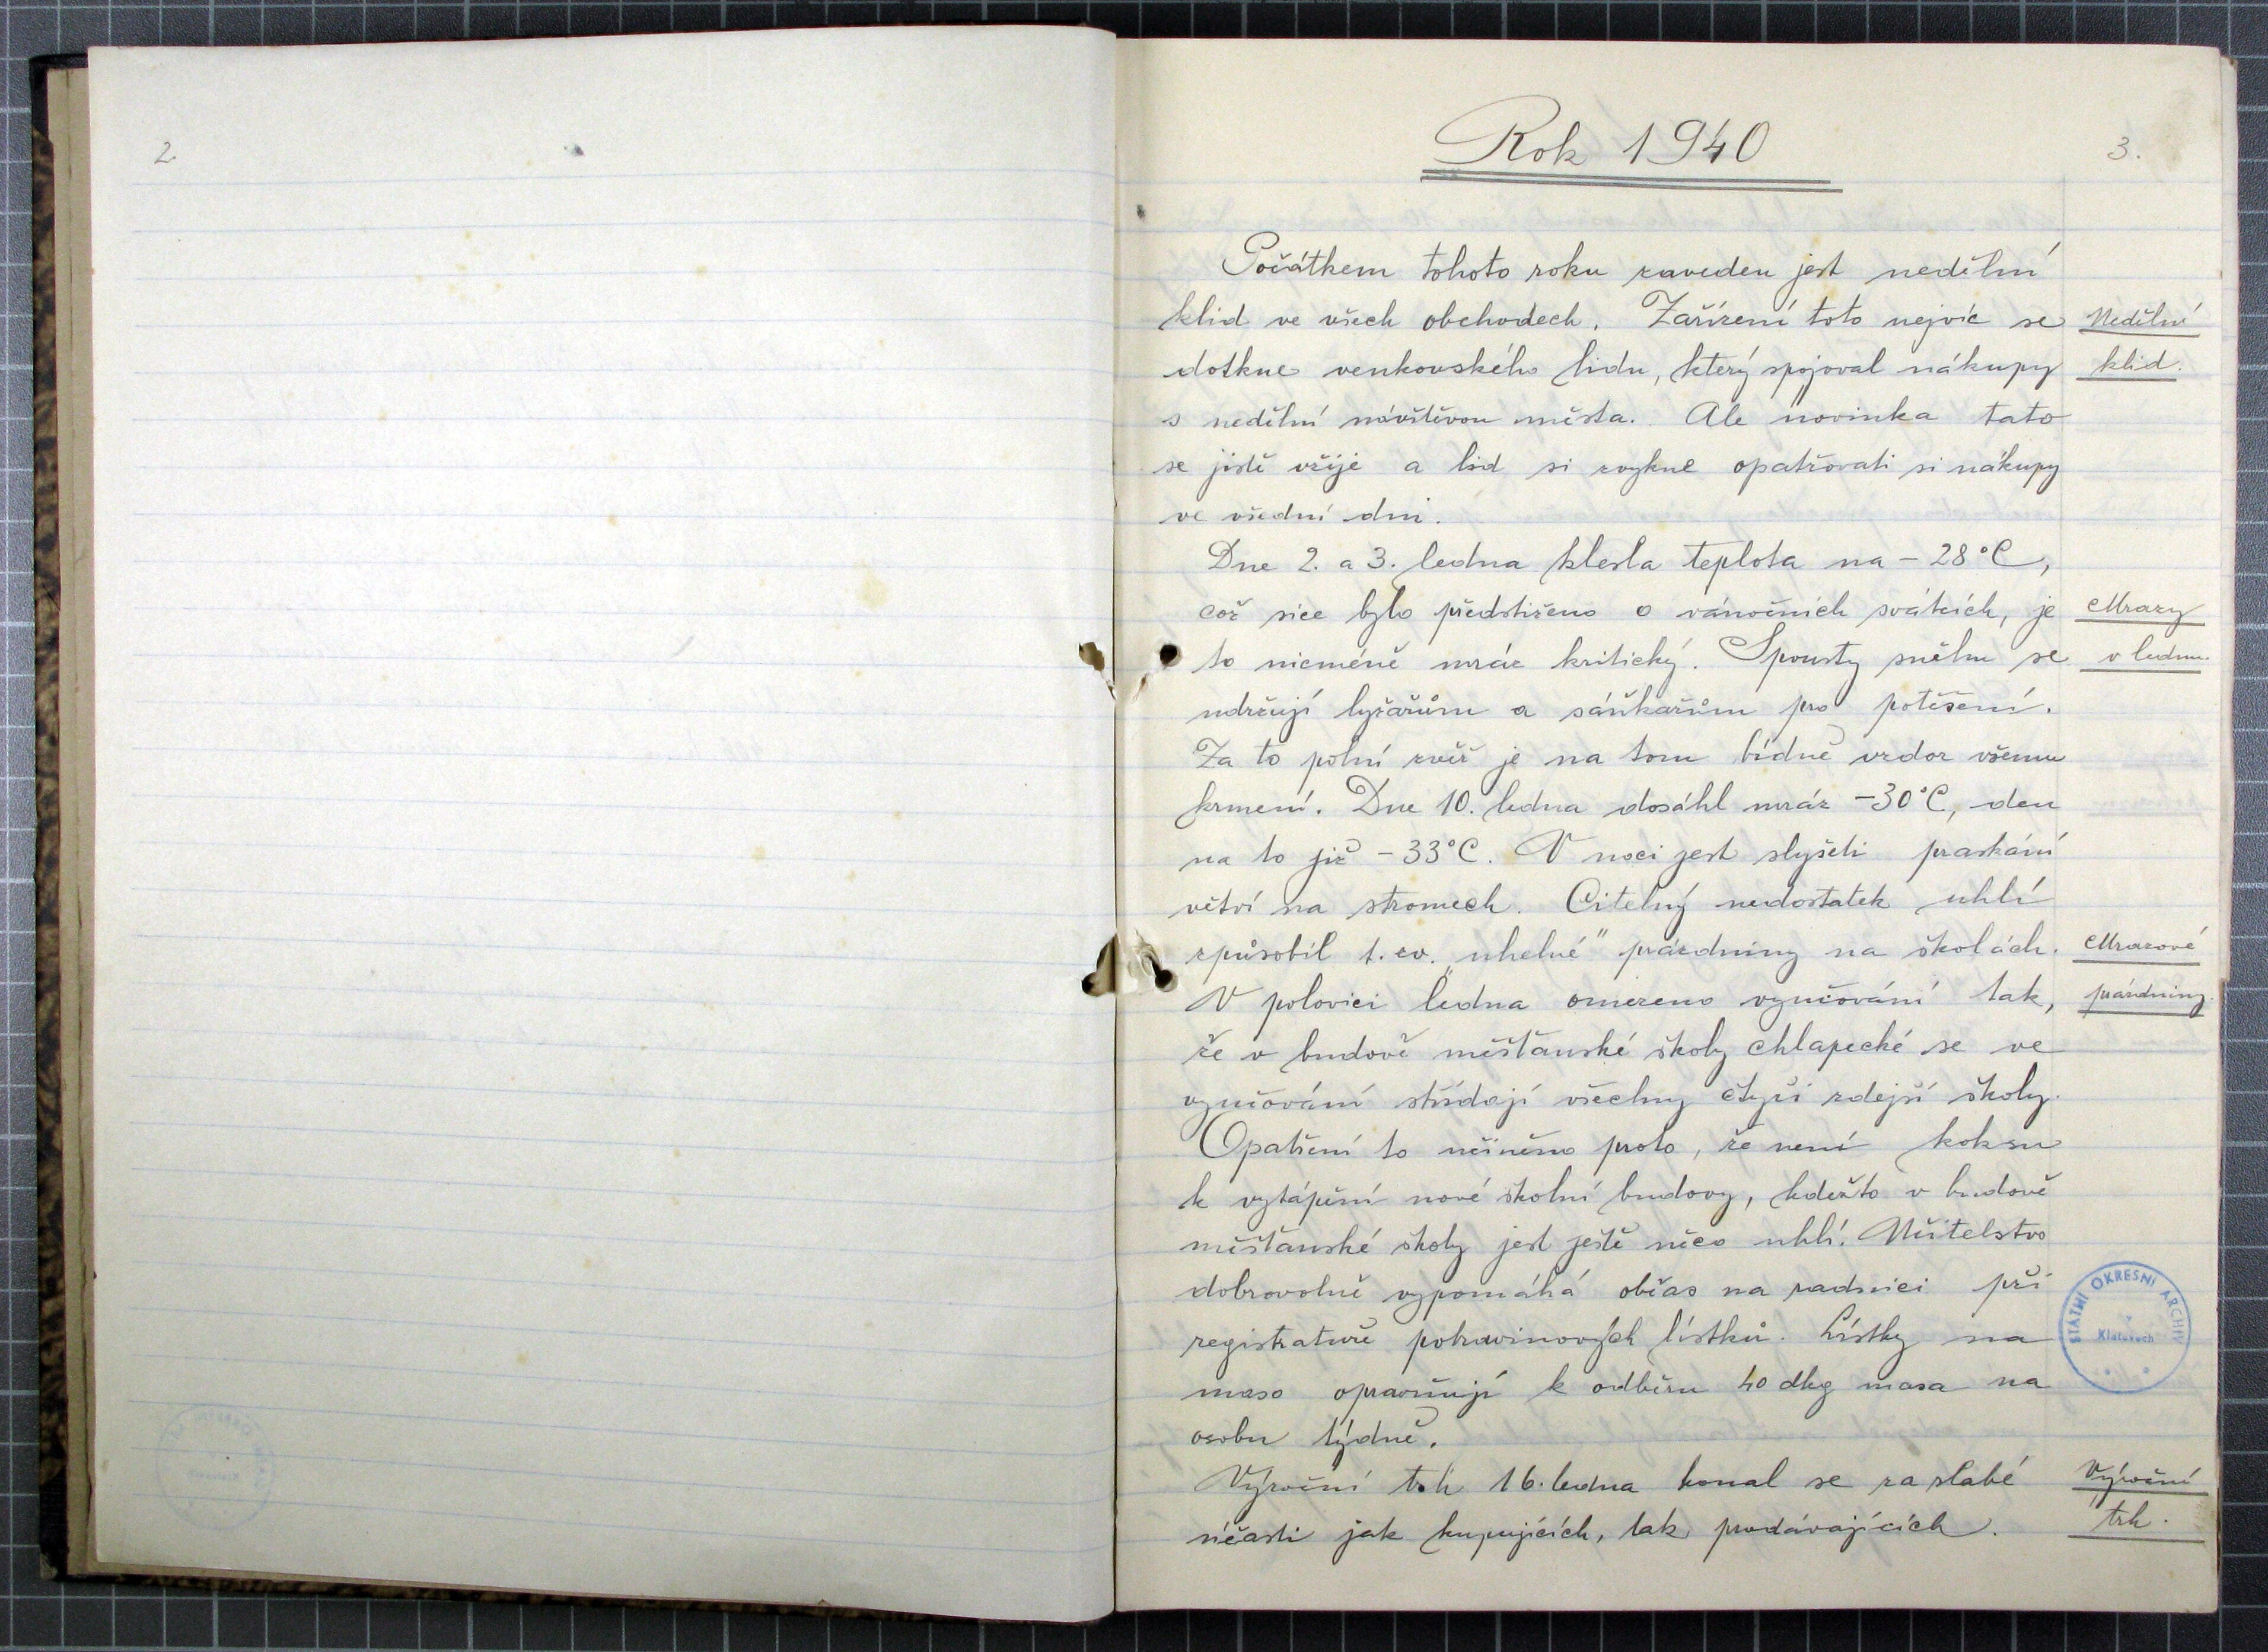 2
Rok 1940
3.
Počátkem tohoto roku zaveden jest nedělní
klid ve všech obchodech. Zařízení toto nejvíc se
Nedělní
dotkne venkovského lidu, který spojoval nákupy
klid.
s nedělní návštěvou města. Ale novinka tato
se jistě vžije a lid si zvykne opatřovati si nákupy
ve všední dni.
Dne 2. a 3. ledna klesla teplota na - 28°C,
což sice bylo předstiženo o vánočních svátcích, je
Mrazy
to nicméně mráz kritický. Spousty sněhu se
v lednu.
udržují lyžařům a sáňkařům pro potěšení.
Za to polní zvěř je na tom bídně vzdor všemu
krmení. Dne 10. ledna dosáhl mráz -30°C, den
na to již - 33°C. V noci jest slyšeti praskání
větví na stromech. Citelný nedostatek uhlí
způsobil t. zv. „uhelné" prázdniny na školách.
Mrazové
V polovici ledna omezeno vyučování tak,
prázdniny.
že v budově měšťanské školy chlapecké se ve
vyučování střídají všechny čtyři zdejší školy.
Opatření to učiněno proto, že není koksu
k vytápění nové školní budovy, kdežto v budově
měšťanské školy jest ještě něco uhlí. Učitelstvo
dobrovolně vypomáhá občas na radnici při
registratuře potravinových lístků. Lístky na
maso opravňují k odběru 40 dkg masa na
osobu týdně.
STÁTNÍ OKRESNÍ ARCHIV
v
Klatovech
Výroční trh 16. ledna konal se za slabé
Výroční
účasti jak kupujících, tak prodávajících.
trh.